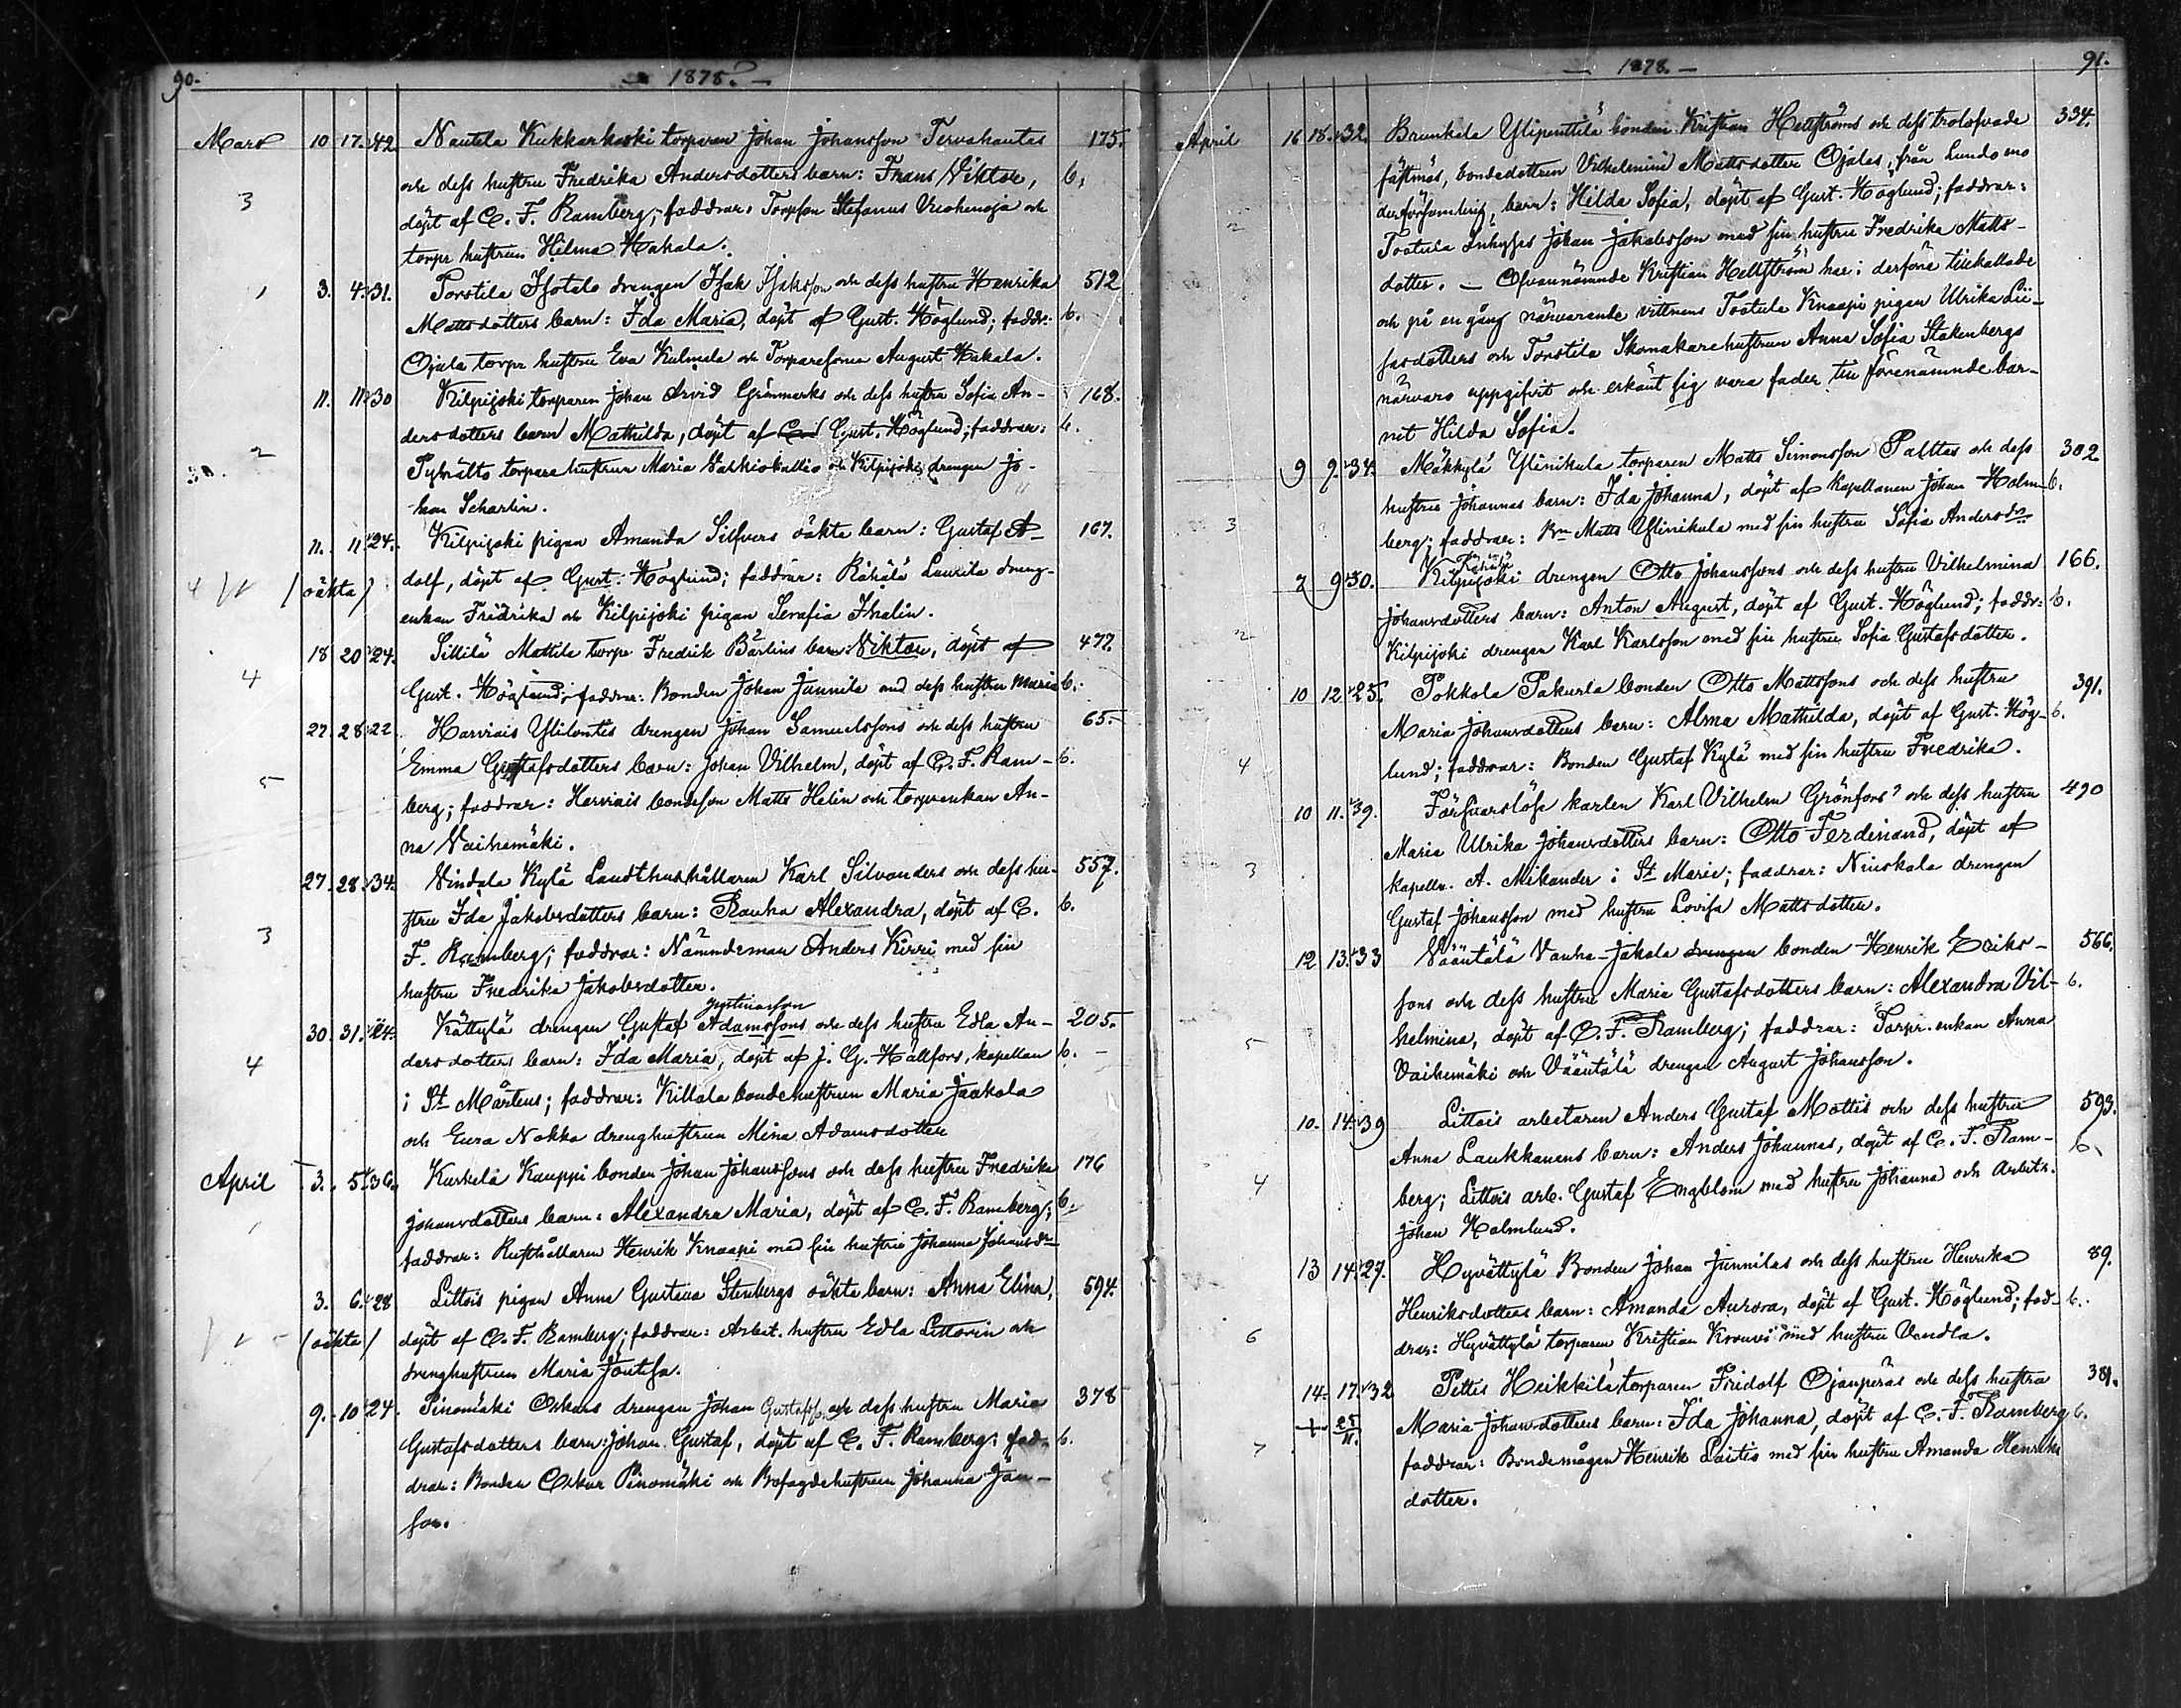 90.
1878.
Mars 10 17. 42 Nautela Kukkarkoski torparen Johan Johansson Tervahautas 175.
och dess hustru Fredrika Andersdotters barn: Frans Viktor, b.
3 döpt af C. F. Ramberg; faddrar: Torpson Stefanus och
torpr hustrun Hilma Hakala.
1 3. 4. 31. Torstila Isotalo drengen Isak Isaksson och dess hustru Henrika 512
Mattsdotters barn: Ida Maria, döpt af Gust. Höglund; faddr: b.
Ojala torpr hustru Eva Kulmala och Torparesonen August Hakala.
11. 11 30 Kilpijoki torparen Johan Arvid Grönmarks och dess hustru Sofia An- 168.
2 dersdotters barn Mathilda, döpt af Gust. Höglund; faddrar: b.
Pyhältö torparehustrun Maria och Kilpijoki drengen Jo-
han Scharlin.
11. 11 24. Kilpijoki pigan Amanda Silfvers oäkta barn: Gustaf A- 167.
4 (oäkta) dolf, döpt af Gust. Höglund; faddrar: Rähälä Laurila dreng-
enkan Fridrika och Kilpijoki pigan Serafia Thalin.
18 20 24. Sillilä Mattila torpr Fredrik Bärlins barn: Viktor, döpt af 477.
4 Gust. Höglund; faddrar: Bonden Johan Junnila med dess hustru Maria b.
27. 28. 22 Harvais Ylilontis drengen Johan Samuelssons och dess hustru 65.
Emma Gustafsdotters barn: Johan Vilhelm, döpt af C. F. Ram- b.
5 berg; faddrar: Harvais bondeson Matts Helin och torparenkan An-
na Vaihemäki.
27. 28. 34. Vindala Kylä Landthushållaren Karl Silvanders och dess hu- 557.
stru Ida Jakobsdotters barn: Rauha Alexandra, döpt af C. b.
3 F. Ramberg; faddrar: Nämndeman Anders Kirri med sin
hustru Fredrika Jakobsdotter.
Justinasson
30. 31. 24. Kättylä drengen Gustaf Adamssons och dess hustru Edla An- 205.
4 dersdotters barn: Ida Maria, döpt af J. G. Hällfors, kapellan b.
i St Mårtens; faddrar: Killala bondehustrun Maria Jaakola
och Eura Nokka drenghustrun Mina Adamsdotter
April 3. 5. 36. Kurkela Kauppi bonden Johan Johanssons och dess hustru Fredrika 176
Johansdotters barn: Alexandra Maria, döpt af C. F. Ramberg; b.
faddrar: Rusthållaren Henrik Knaapi med sin hustru Johanna Johansdr
3. 6. 28 Littois pigan Anna Gustava Stenbergs oäkta barn: Anna Elina, 594.
(oäkta) döpt af C. F. Ramberg; faddrar: Arbet. hustru Edla Littorin och
drenghustrun Maria Joutsa.
9. 10 24. Pinomäki Orkas drengen Johan Gustafsson och dess hustru Maria 378
Gustafsdotters barn: Johan Gustaf, döpt af C. F. Ramberg; fad- b.
drar: Bonden Oskar Pinomäki och Befogdehustrun Johanna Jan-
son.
1878.
91.
April 16 18. 32. Brunkala Ylipenttilä bonden Kristian Hellströms och dess trolofvade 334.
fästmös, bondedottren Vilhelmina Mattsdotter Ojalas, från Lundo mo
2 derförsamling, barn: Hilda Sofia, döpt af Gust. Höglund; faddrar:
Toatula Inhyses Johan Jakobsson med sin hustru Fredrika Matts-
dotter. — Ofvannämnde Kristian Hellström har i derföre tillkallade
och på en gång närvarande vittnens Toatula Knaapi pigan Ulrika Lii-
sasdotters och Torstila Skomakarehustrun Anna Sofia Stakenbergs
närvaro uppgifvit och erkänt sig vara fader till förenämnde bar-
net Hilda Sofia.
9 9. 34. Mäkkylä Ylinikula torparen Matts Simonsson Palttas och dess 302
hustru Johannas barn: Ida Johanna, döpt af Kapellanen Johan Holm- b.
3 berg; faddrar: Bn Matts Ylinikula med sin hustru Sofia Andersdr
Rähälä
7 9 30. Kilpijoki drengen Otto Johanssons och dess hustru Vilhelmina 166.
Johansdotters barn: Anton August, döpt af Gust. Höglund; faddr: b.
2 Kilpijoki drengen Karl Karlsson med sin hustru Sofia Gustafsdotter.
10 12 25. Pokkola Pakurla bonden Otto Mattssons och dess hustru 391.
Maria Johansdotters barn: Alma Mathilda, döpt af Gust. Hög- b.
4 lund; faddrar: Bonden Gustaf Kylä med sin hustru Fredrika.
10 11. 39. Försvarslöse karlen Karl Vilhelm Grönfors och dess hustru 490
Maria Ulrika Johansdotters barn: Otto Ferdinand, döpt af
3 Kapelln. A. Mikander i St Marie; faddrar: Niuskala drengen
Gustaf Johansson med hustru Lovisa Mattsdotter.
12 13. 33 Vääntälä Vanha-Jakala drengen bonden Henrik Eriks- 566.
sons och dess hustru Maria Gustafsdotters barn: Alexandra Vil- b.
5 helmina, döpt af C. F. Ramberg; faddrar: Torpr. enkan Anna
Vaihemäki och Vääntälä drengen August Johansson.
10. 14. 39 Littois arbetaren Anders Gustaf Mattis och dess hustru 593.
Anna Laukkanens barn: Anders Johannes, döpt af C. F. Ram- b.
4 berg; Littois arb. Gustaf Engblom med hustru Johanna och Arbetr.
Johan Holmlund.
13 14. 27. Hyvättylä Bonden Johan Junnilas och dess hustru Henrika 89.
Henriksdotters barn: Amanda Aurora, döpt af Gust. Höglund; fad- b.
6 drar: Hyvättylä torparen Kristian Krouvi med hustru Vendla.
14. 17. 32 Pettis Heikkilä torparen Fridolf Ojanperäs och dess hustru 381.
+ 25/11. Maria Johansdotters barn: Ida Johanna, döpt af C. F. Ramberg b.
7 faddrar: Bondemågen Henrik Laitis med sin hustru Amanda Henriks
dotter.